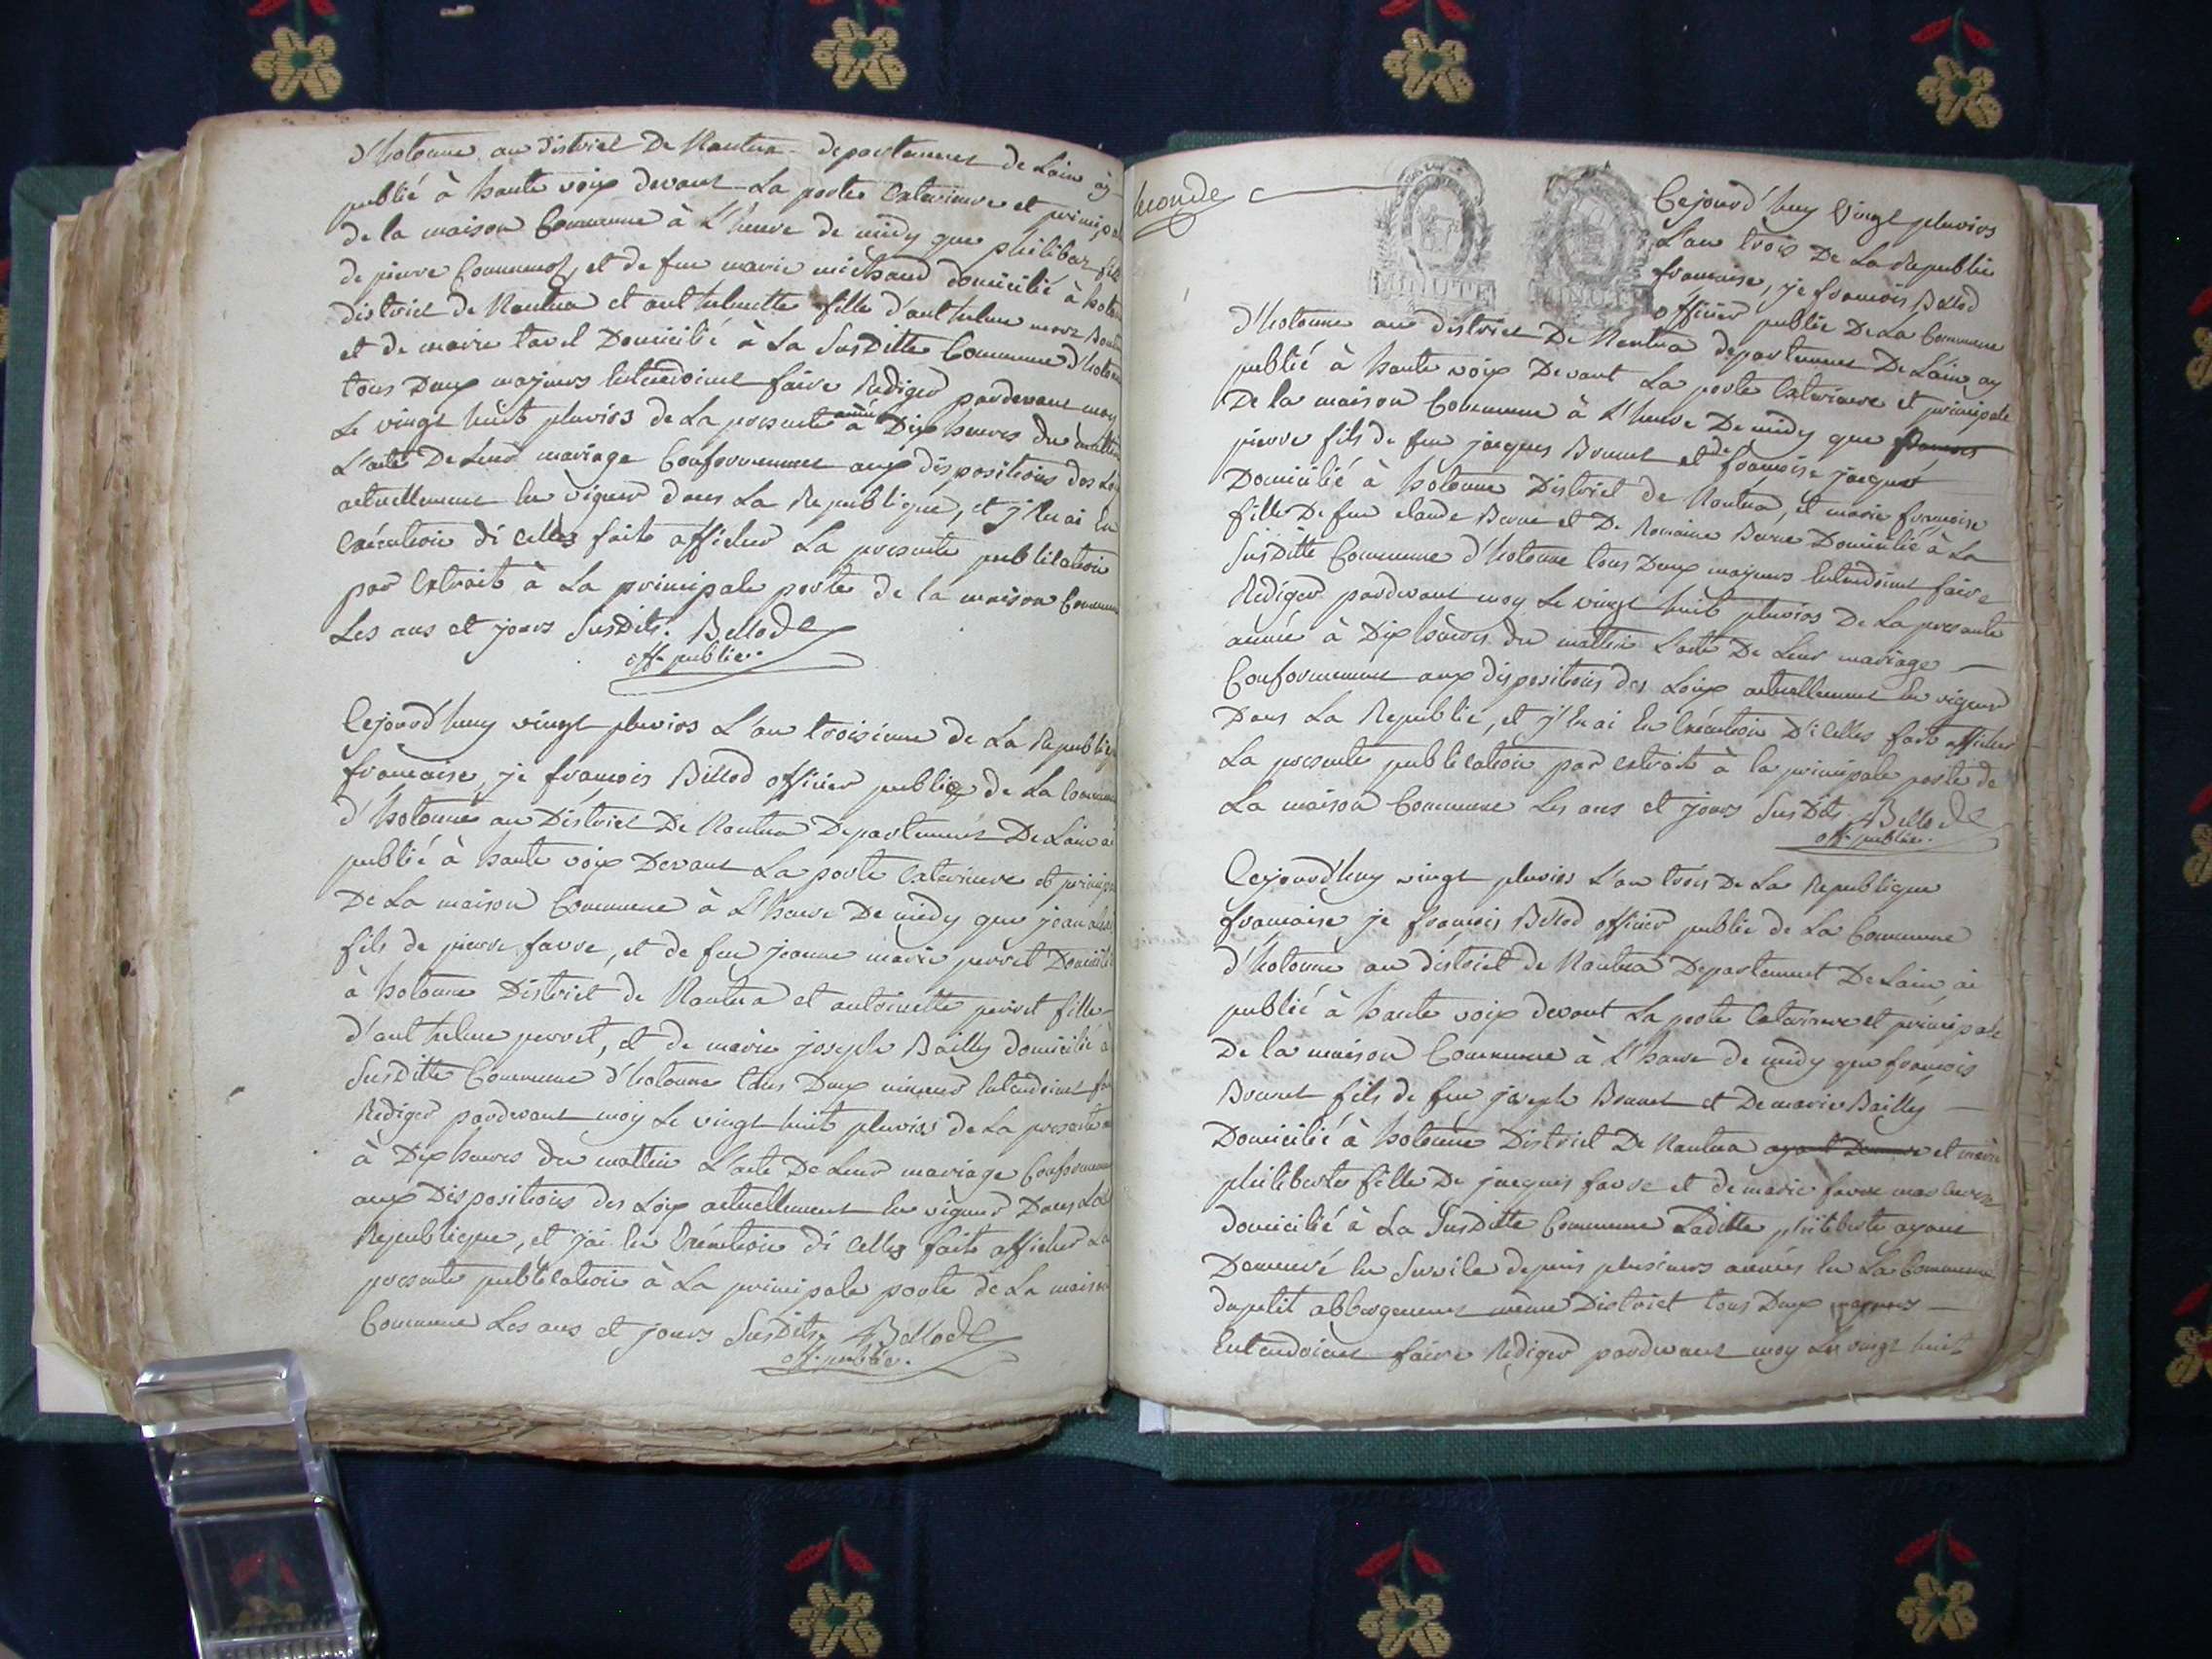 d'hotonne au district De Nantua departement de Lain ay
publié à haute voix devant La porte Exterieure et principa
de la maison Commune à L'heure de midy que philibar fils
de pierre et de feu marie michaud domicilié à hoton
district de Nantua et anthelmette fille d'anthelme
et de marie tavel Domicilié à La Susditte Commune d'hoton
tous Deux majeurs Entendoint faire Rediger pardevant moy
Le vingt huit pluvios de La presente année à Dix heures du mattin
L'acte De Leur mariage Conformement aux dispositions des Loi
actuellement En vigeur dans La Republique, et j'En ai En
Exécution di Celles fait afficher La presente publication
par Extrait à La principale porte de la maison Commune
Les ans et jours Susdits. Bellod
off. public.
Cejourd'huy vingt pluvios L'an troisieme de La Republiq
francaise, je francois Bellod officier public de La Commun
d'hotonne au District De Nantua Departement De Lain a
publié à haute voix Devant La porte Exterieure et principa
De La maison Commune à L'heure De midy que jean
fils de pierre favre, et de feu jeanne marie perret Domicilié
à hotonne District de Nantua et antoinette perret fille
d'anthelme perret, et de marie joseph Bailly domicilié à
Susditte Commune d'hotonne tous Deux mineur Entendoint fai
Rediger pardevant moy Le vingt huit pluvios de La presente
à Dix heures du mattin L'acte De Leur mariage Conformem
aux Dispositions des Loix actuellement En vigeur Dans La
Republique, et j'ai En Exécution di Celles fait afficher La
presente publication à La principale porte de La maison
Commune Les ans et jours Susdits. Bellod
off. public.
seconde
MINUTE MINUTE
Cejourd'huy Vingt pluvios
L'an trois De La Republic
francaise, je francois Bellod
officier public De La Commune
d'hotonne au district De Nantua departement De Lain ay
publié à haute voix Devant La porte Exterieure et principale
De la maison Commune à L'heure De midy que francois
pierre fils de feu jacques Bonnet et de francoise jacquet
Domicilié à hotonne District de Nantua, et marie francoise
fille De feu claude Berne et De Romaine Berne Domicilié à La
Susditte Commune d'hotonne tous Deux majeurs Entendoint faire
Rediger pardevant moy Le vingt huit pluvios De La presente
année à Dix heures du mattin L'acte De Leur mariage
Conformement aux dispositions des Loix actuellement En vigeur
Dans La Republic, et j'En ai En Exécution D'icelles fait afficher
La presente publication par Extrait à la principale porte de
La maison Commune Les ans et jours Susdits. Bellod
off. public.
Cejourd'huy vingt pluvios L'an trois De La Republique
francaise je francois Bellod officier public de La Commune
d'hotonne au district de Nantua Departement De Lain ai
publié à haute voix devant La porte Exterieure et principale
De la maison Commune à L'heure de midy que francois
Bonnet fils de feu joseph Bonnet et De marie Bailly
Domicilié à hotonne District De Nantua ayant Demeuré et marie
philiberte fille De jacques favre et de marie favre
domicilié à La Susditte Commune Laditte philiberte ayant
Demeuré En Service depuis plusieurs années En La Commune
dupetit abbergement même District tous Deux majeurs
Entendoint faire Rediger pardevant moy Le vingt huit